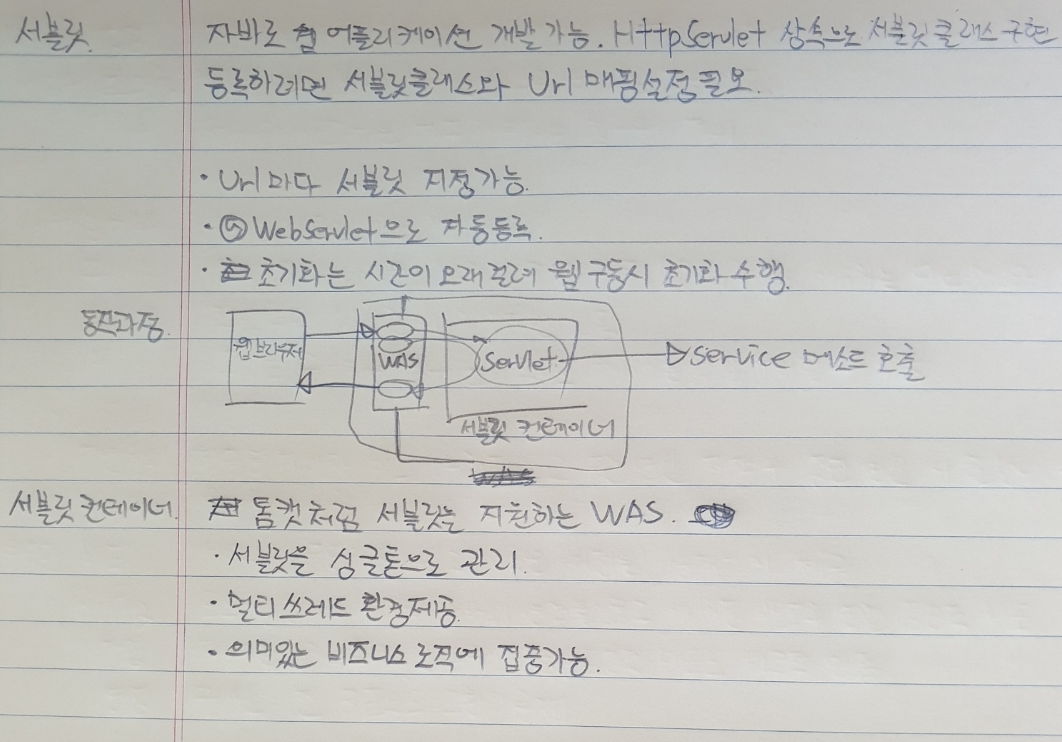 서블릿. 자바로 웹 어플리케이션 개발 가능. HttpServlet 상속으로 서블릿 클래스 구현
등록하려면 서블릿클래스와 Url 매핑설정필요.
· Url마다 서블릿 지정가능.
· @WebServlet으로 자동등록.
· 초기화는 시간이 오래걸려 웹 구동시 초기화 수행.
동작과정.
웹브라우저
WAS
Servlet
service 메소드 호출
서블릿 컨테이너
서블릿 컨테이너. 톰캣처럼 서블릿는 지원하는 WAS.
· 서블릿을 싱글톤으로 관리.
· 멀티쓰레드 환경제공.
· 의미있는 비즈니스 로직에 집중가능.